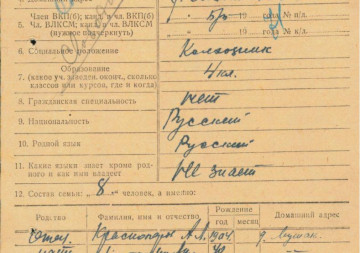 Член ВКП(б); канд. в чл. ВКП(б)
5. Чл. ВЛКСМ; канд. в чл. ВЛКСМ
(нужное подчеркнуть)
б/п 19 года № п/д.
19 года № к/к.
6. Социальное положение Колхозник
Образование
7. (какое уч. заведен. оконч., сколько
классов или курсов, где и когда)
4 кл.
8. Гражданская специальность нет
9. Национальность Русский
10. Родной язык Русский
11. Какие языки знает кроме род-
ного и как ими владеет
Не знает
12. Состав семьи: 8 человек, а именно:
Родство Фамилия, имя и отчество Рождение Домашний адрес
год месяц
Отец А. Л. 1904. д.